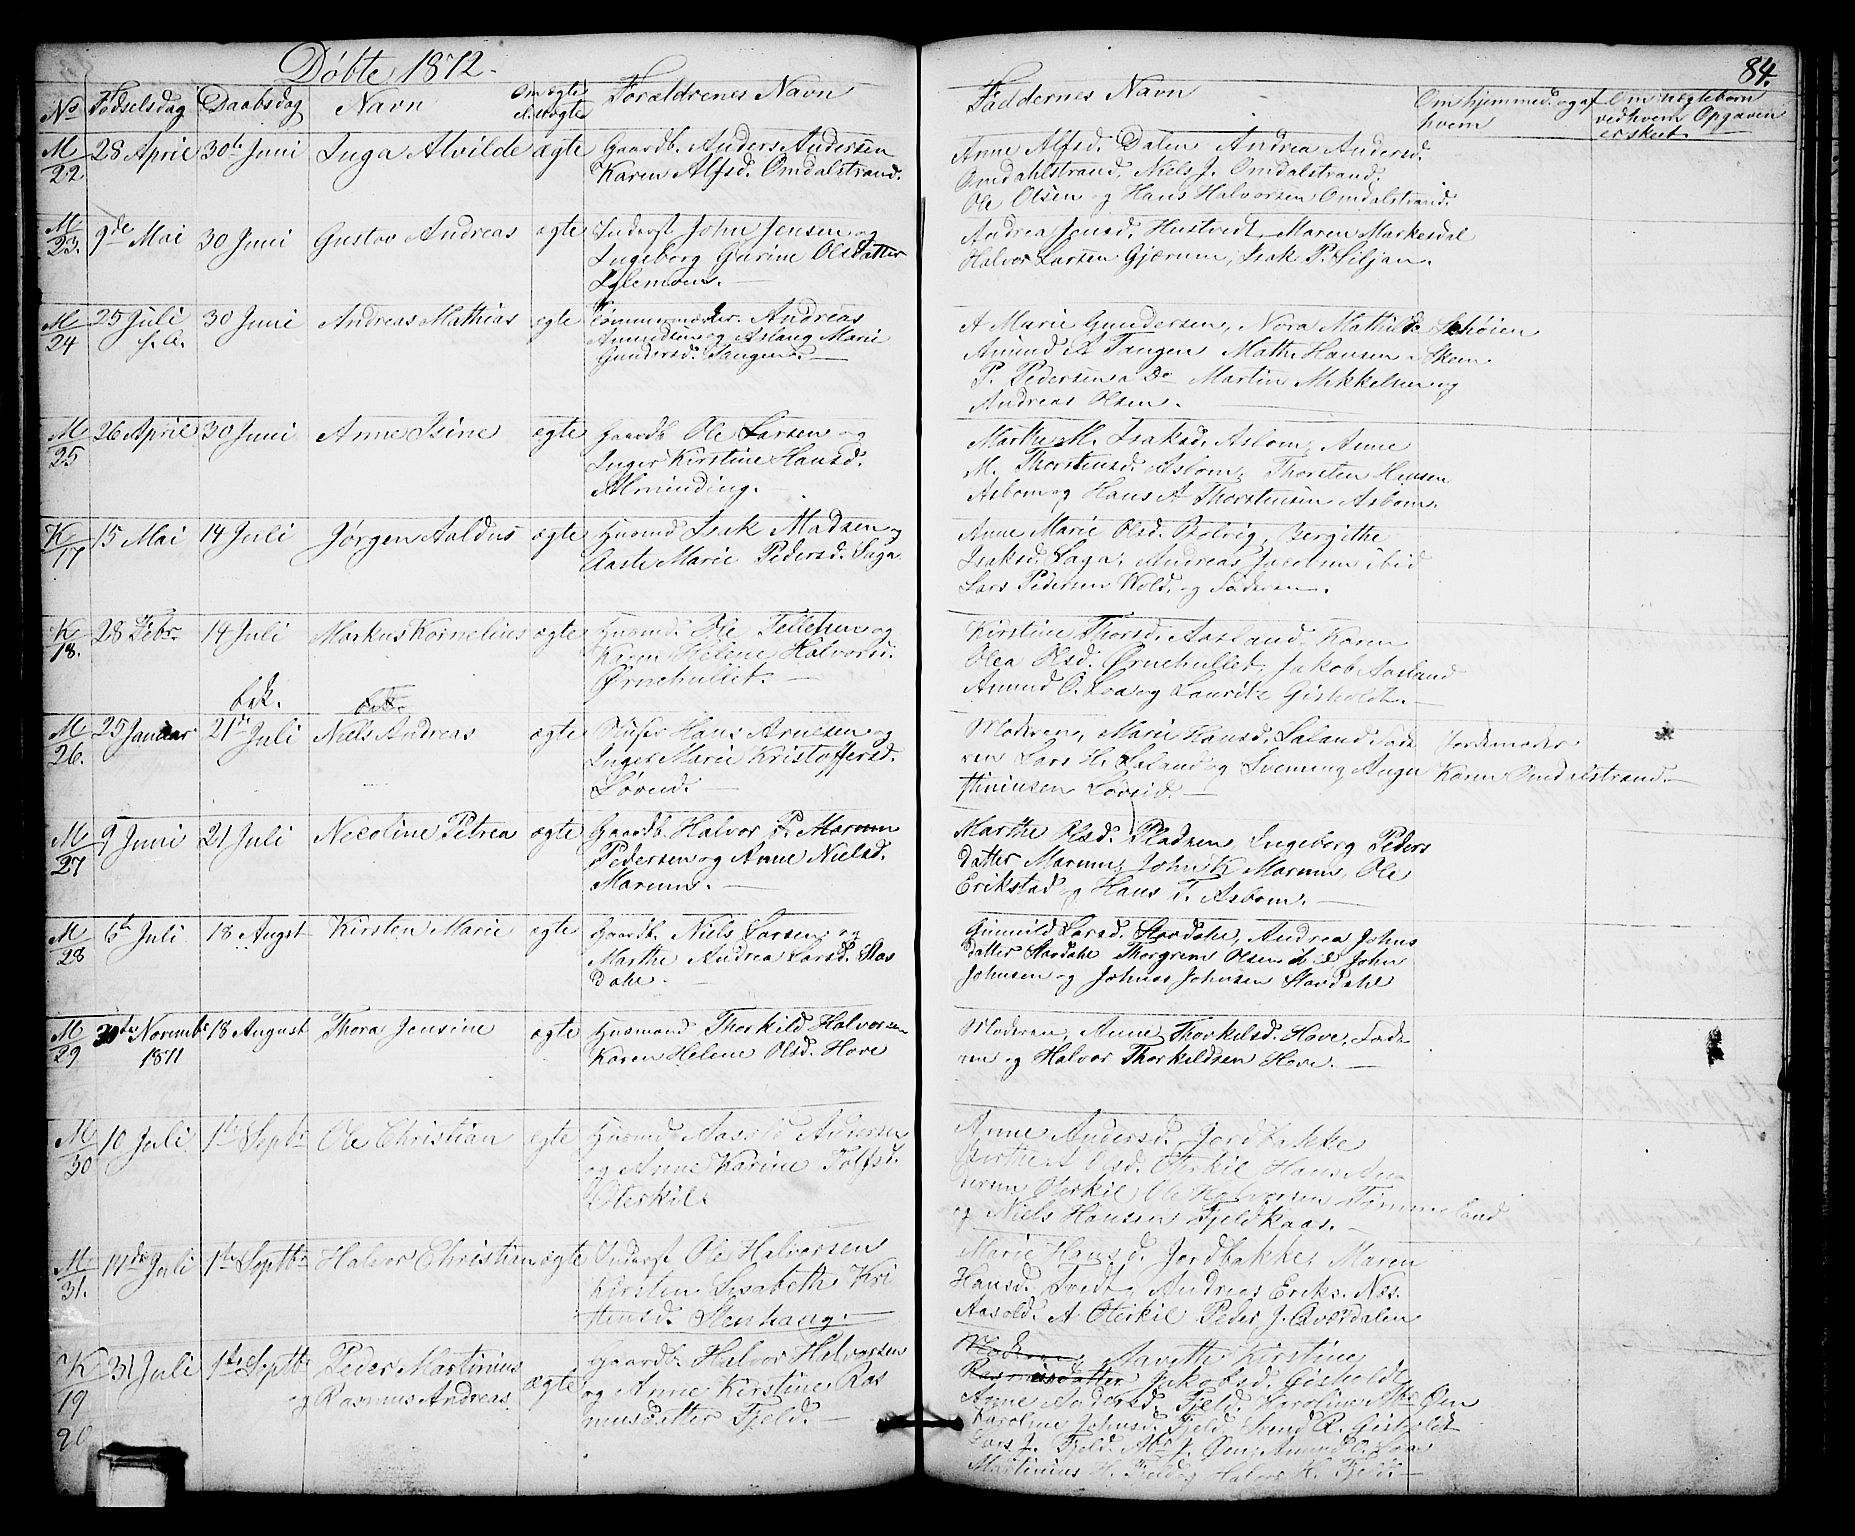 Døbte 1872.
84.
No Fødselsdag Daabsdag Navn Om ægte el. uægte Forældrenes Navn Faddernes Navn Om hjemmed. og af hvem Om uægteborn ved hvem Opgaven er skeet.
M 22 28 April 30te Juni Inga Alvilde ægte Gaardb. Anders Andersen
Karen Alfsd. Omdalstrand.
Anne Alfsd. Dalen Andrea Andersd.
Omdahlstrand, Niels J. Omdalstrand.
Ole Olsen og Hans Halvorsen Omdalstrand.
M 23. 9de Mai 30 Juni Gustav Andreas ægte Inderst John Jensen og
Ingeborg Gurine Olsdatter
Andrea Jensd. Hustvedt, Maren Markesdal
Halvor Larsen Gjærum, Isak P. Siljan.
M 24 25 Juli f. A. 30 Juni Andreas Mathias ægte Andreas
Amundsen og Aslaug Marie
Gundersd. Tangen.
A Marie Gundersen, Nora Mathilde Schøien
Amund A Tangen Math. Hansen Skien
P. Pedersen Do Martin Mikkelsen og
Andreas Olsen.
M 25 26 April 30 Juni Anne Isine ægte Gaardb. Ole Larsen og
Inger Kirstine Hansd.
Alminding.
Marthe M. Isaksd. Asbom, Anne
M. Thorstensd. Asbom, Thorsten Hansen
Asbom og Hans A Thorstensen Asbom.
K 17 15 Mai 14 Juli Jørgen Aaldus ægte Husmd Isak Madsen og
Aaste Marie Pedersd. Saga
Anne Marie Olsd. Bolvig, Bergithe
Isaksd. Saga, Andreas Jacobsen ibid
Lars Pedersen Wold, og Faderen.
K 18. 28 Febr. 14 Juli Markus Kornelius ægte Husmd. Ole Tellefsen og
Karen Helene Halvorsd.
Ørnehullet.
Kirstine Thorsd. Aasland, Karen
Olea Olsd. Ørnehullet, Jakob Aasland
Amund O. Loa og Lauritz Gisholdt.
bek.
M 26. 25 Januar 21de Juli Niels Andreas ægte Hans Arnesen og
Inger Marie Kristoffersd.
Løveid.
Moderen, Marie Hansd. Laland Fade
ren Lars H. Laland og Svenning Augu
stinusen Løveid.
Jordemoder
Karen Omdalstrand.
M 27 9 Juni 21 Juli Nicoline Petrea ægte Gaardb. Halvor P. Marum
Pedersen og Anne Nielsd.
Marum.
Marthe Olsd. Pladsen, Ingeborg Peders
datter Marum, John K Marum, Ole
Erikstad og Hans T. Asbom.
M 28 6te Juli 18 August Kirsten Marie ægte Gaardb. Niels Larsen og
Marthe Andrea Larsd. Stav
dahl.
Gunnild Larsd. Stavdahl, Andrea Johns
datter Stavdahl Thorgrim Olsen ibid John
Johnsen og Johnas Johnsen Stavdahl
M 29 30te Novembr 1871 18 August Thora Jensine ægte Husmand Thorkild Halvorsen
Karen Helene Olsd. Hove
Moderen, Anne Thorkilsd. Hove, Fade
ren og Halvor Thorkildsen Hove.
M 30 10 Juli 1te Septbr Ole Christian ægte Husmd Aasold Andersen
og Anne Karine Tolfsd.
Oterkil.
Anne Andersd. Jordbakke
Berthe A Olsd. Oterkil, Hans An
dersen Oterkil Ole Halvorsen Tømmerland
og Niels Hansen Fjeldkaas.
M 31. 14de Juli 1te Septbr Halvor Christian ægte Inderst Ole Halvorsen
Kirsten Lisabeth Kri
stensd. Stenhaug.
Marie Hansd. Jordbakke, Maren
Hansd. Tvedt, Andreas Eriks. Næs.
Aasold. A. Oterkil Peder J. Qværdalen
K 19 20 31 Juli 1te Septbr Peder Martinius
og Rasmus Andreas ægte Gaardb. Halvor Halvorsen
og Anne Kirstine Ras
musdatter Fjeld.
Moderen, Kirstine
Rasmusdatter Jakobsd. Gisholdt
Anne Andersd. Fjeld. Karoline Øen
Karoline Johnsd. Fjeld Svend R. Gisholdt
Lars J. Fjeld. J. Øen, Amund O. Loa
Martinius H. Fjeld og Halvor H. Fjeld